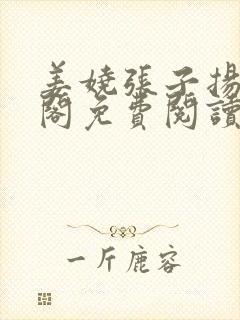 姜嬈張子揚
閣免費閱讀
一斤鹿容